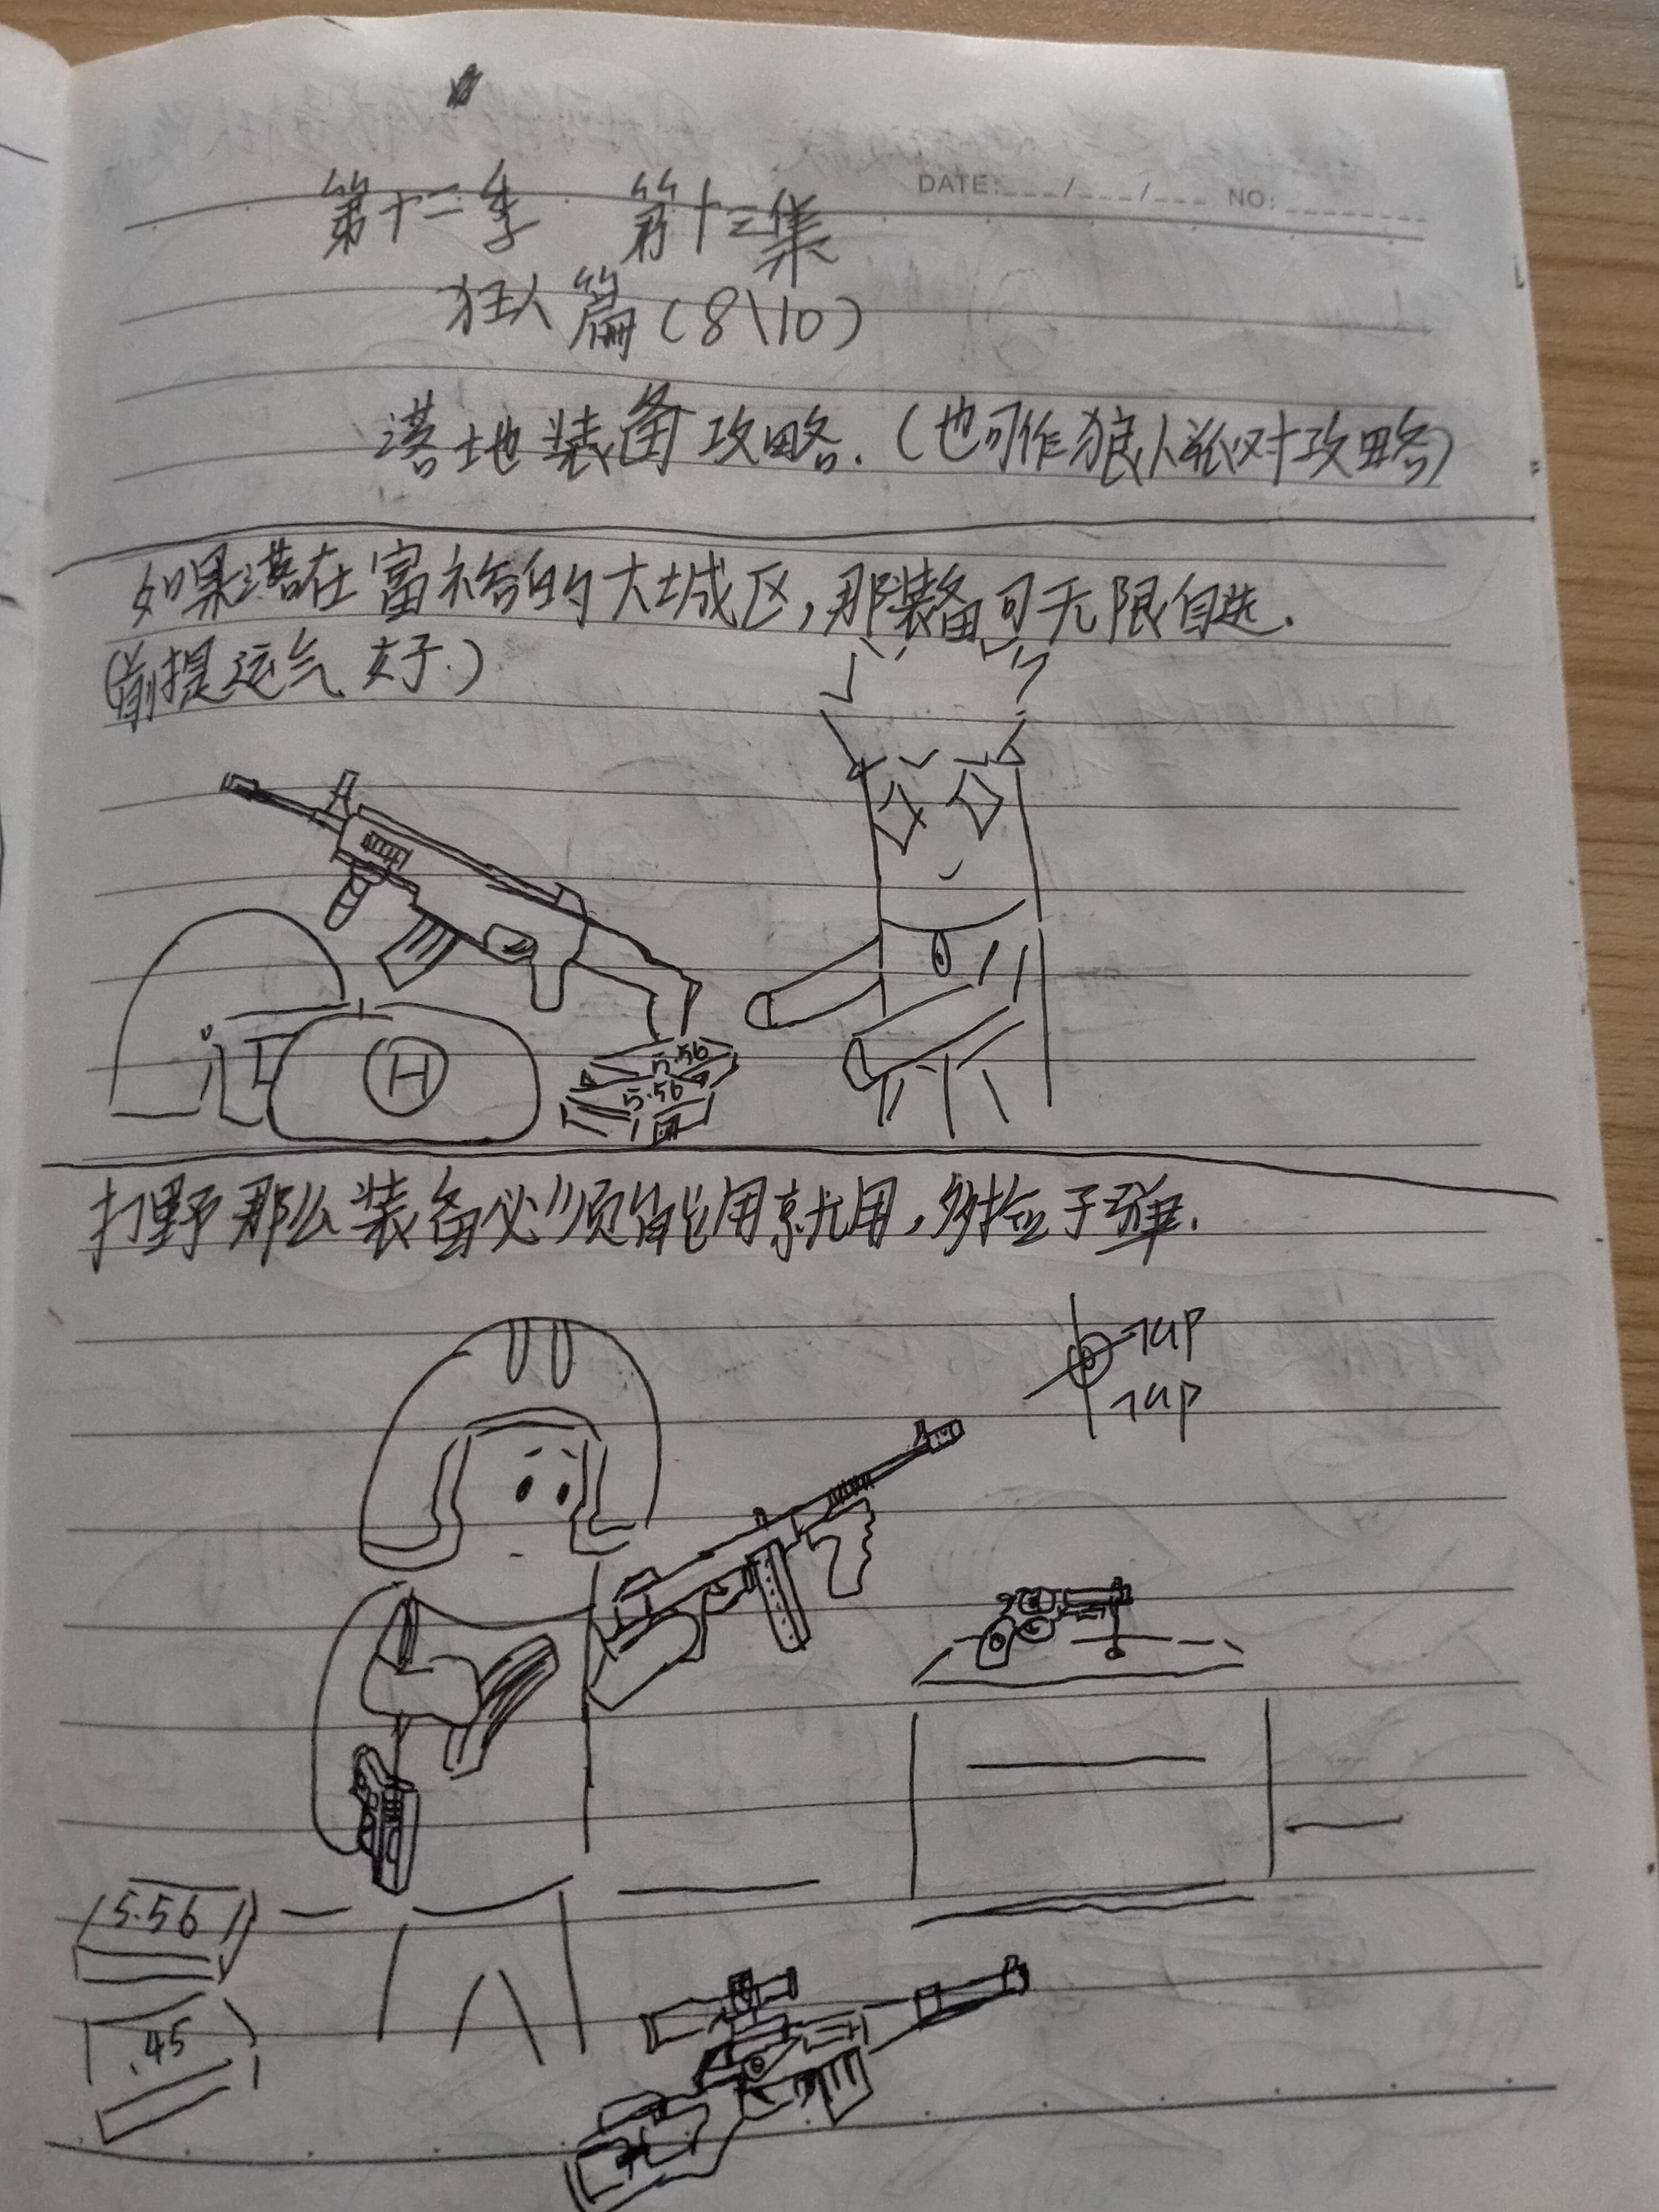 DATE:___/___/___ NO:________
第十二季 第十三集
狂人篇(8\10)
落地装备攻略.(也可作狼人派对攻略)
如果落在富裕的大城区,那装备可无限自选.
(前提运气好.)
H
5.56
5.56
打野那么装备必须能用就用,多捡子弹.
5.56
.45